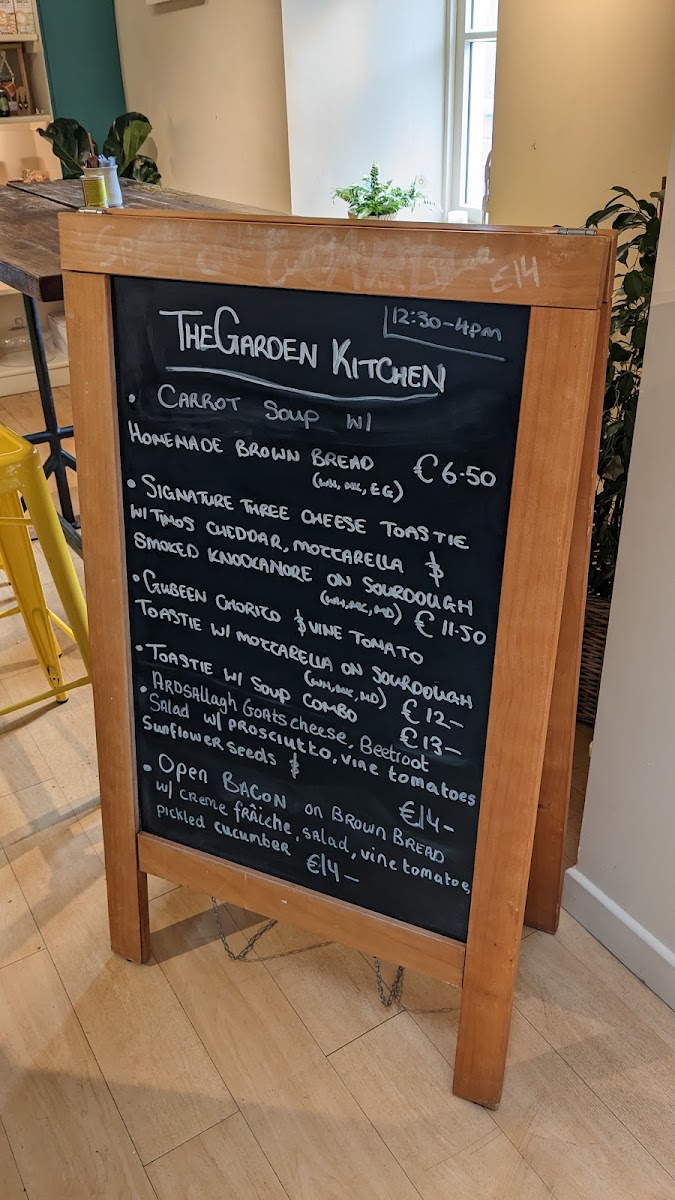 €14
12:30-4pm
THE GARDEN KITCHEN
• CARROT SOUP W/
HOMEMADE BROWN BREAD €6.50
(WH, MK, EG)
• SIGNATURE THREE CHEESE TOASTIE
W/ TINGS CHEDDAR, MOZZARELLA &
SMOKED KNOCKANORE ON SOURDOUGH
(WH, MK, MD) €11.50
• GUBEEN CHORIZO & VINE TOMATO
TOASTIE W/ MOZZARELLA ON SOURDOUGH
(WH, MK, MD) €12-
• TOASTIE W/ SOUP COMBO €13-
• ARDSALLAGH Goats cheese, Beetroot
Salad w/ PROSCIUTTO, vine tomatoes
Sunflower seeds & €14-
• Open BACON on BROWN BREAD
w/ CREME FRÂICHE, SALAD, vine tomatoe,
pickled cucumber €14-